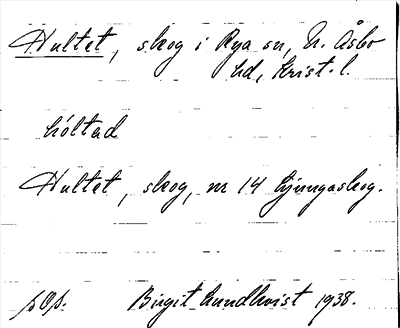 Hultet, skog i Rya sn, N. Åsbo
hd, Krist. l.
hóltad
Hultet, skog, nr 14 Ljungaskog.
Birgit Lundkvist 1938.